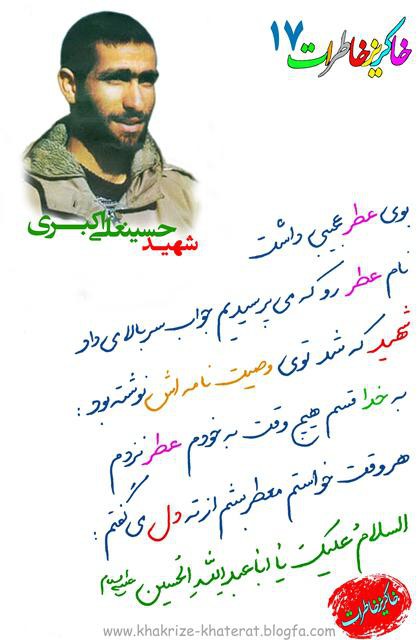 خاکریز خاطرات ۱۷
شهید حسینعلی اکبری
بوی عطر عجیبی داشت
نام عطر رو که می پرسیدیم جواب سر بالا می داد
شهید که شد توی وصیت نامه اش نوشته بود :
به خدا قسم هیچ وقت به خودم عطر نزدم
هر وقت خواستم معطر بشم از ته دل می گفتم :
السلام علیک یا اباعبدالله الحسین علیه السلام
خاکریز خاطرات
www.khakrize-khaterat.blogfa.com